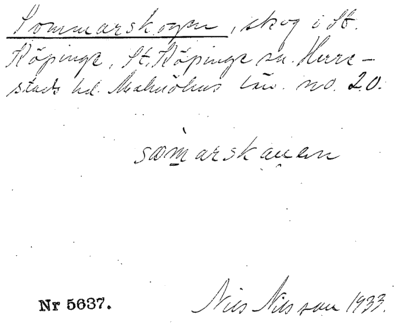 Sommarskogen, skog i St.
Köpinge, St. Köpinge sn. Herre-
stads hd. Malmöhus län. no. 20.
sømarskauen
Nr 5637.
Nils Nilsson 1933.